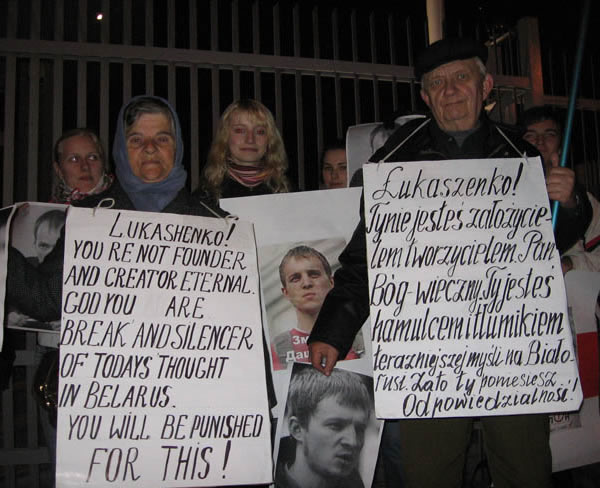 LUKASHENKO!
YOU RE NOT FOUNDER
AND CREATOR ETERNAL.
GOD YOU ARE
BREAK AND SILENCER
OF TODAYS THOUGHT
IN BELARUS.
YOU WILL BE PUNISHED
FOR THIS!
Łukaszenko!
Ty nie jesteś założycie-
lem tworzycielem. Pan
Bóg-wieczny. Ty jesteś
hamulcem i tłumikiem
teraźniejszej myśli na Biało-
rusi. Za to ty poniesiesz
Odpowiedzialność!
Зм
Даш